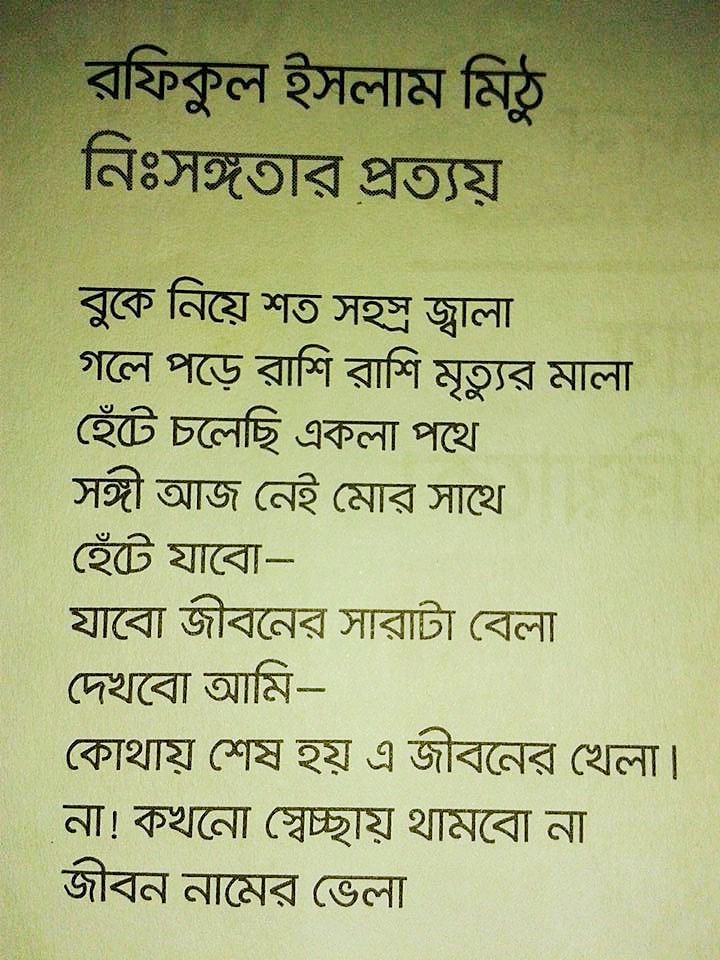 রফিকুল ইসলাম মিঠু
নিঃসঙ্গতার প্রত্যয়
বুকে নিয়ে শত সহস্র জ্বালা
গলে পড়ে রাশি রাশি মৃত্যুর মালা
হেঁটে চলেছি একলা পথে
সঙ্গী আজ নেই মোর সাথে
হেঁটে যাবো–
যাবো জীবনের সারাটা বেলা
দেখবো আমি–
কোথায় শেষ হয় এ জীবনের খেলা।
না! কখনো স্বেচ্ছায় থামবো না
জীবন নামের ভেলা